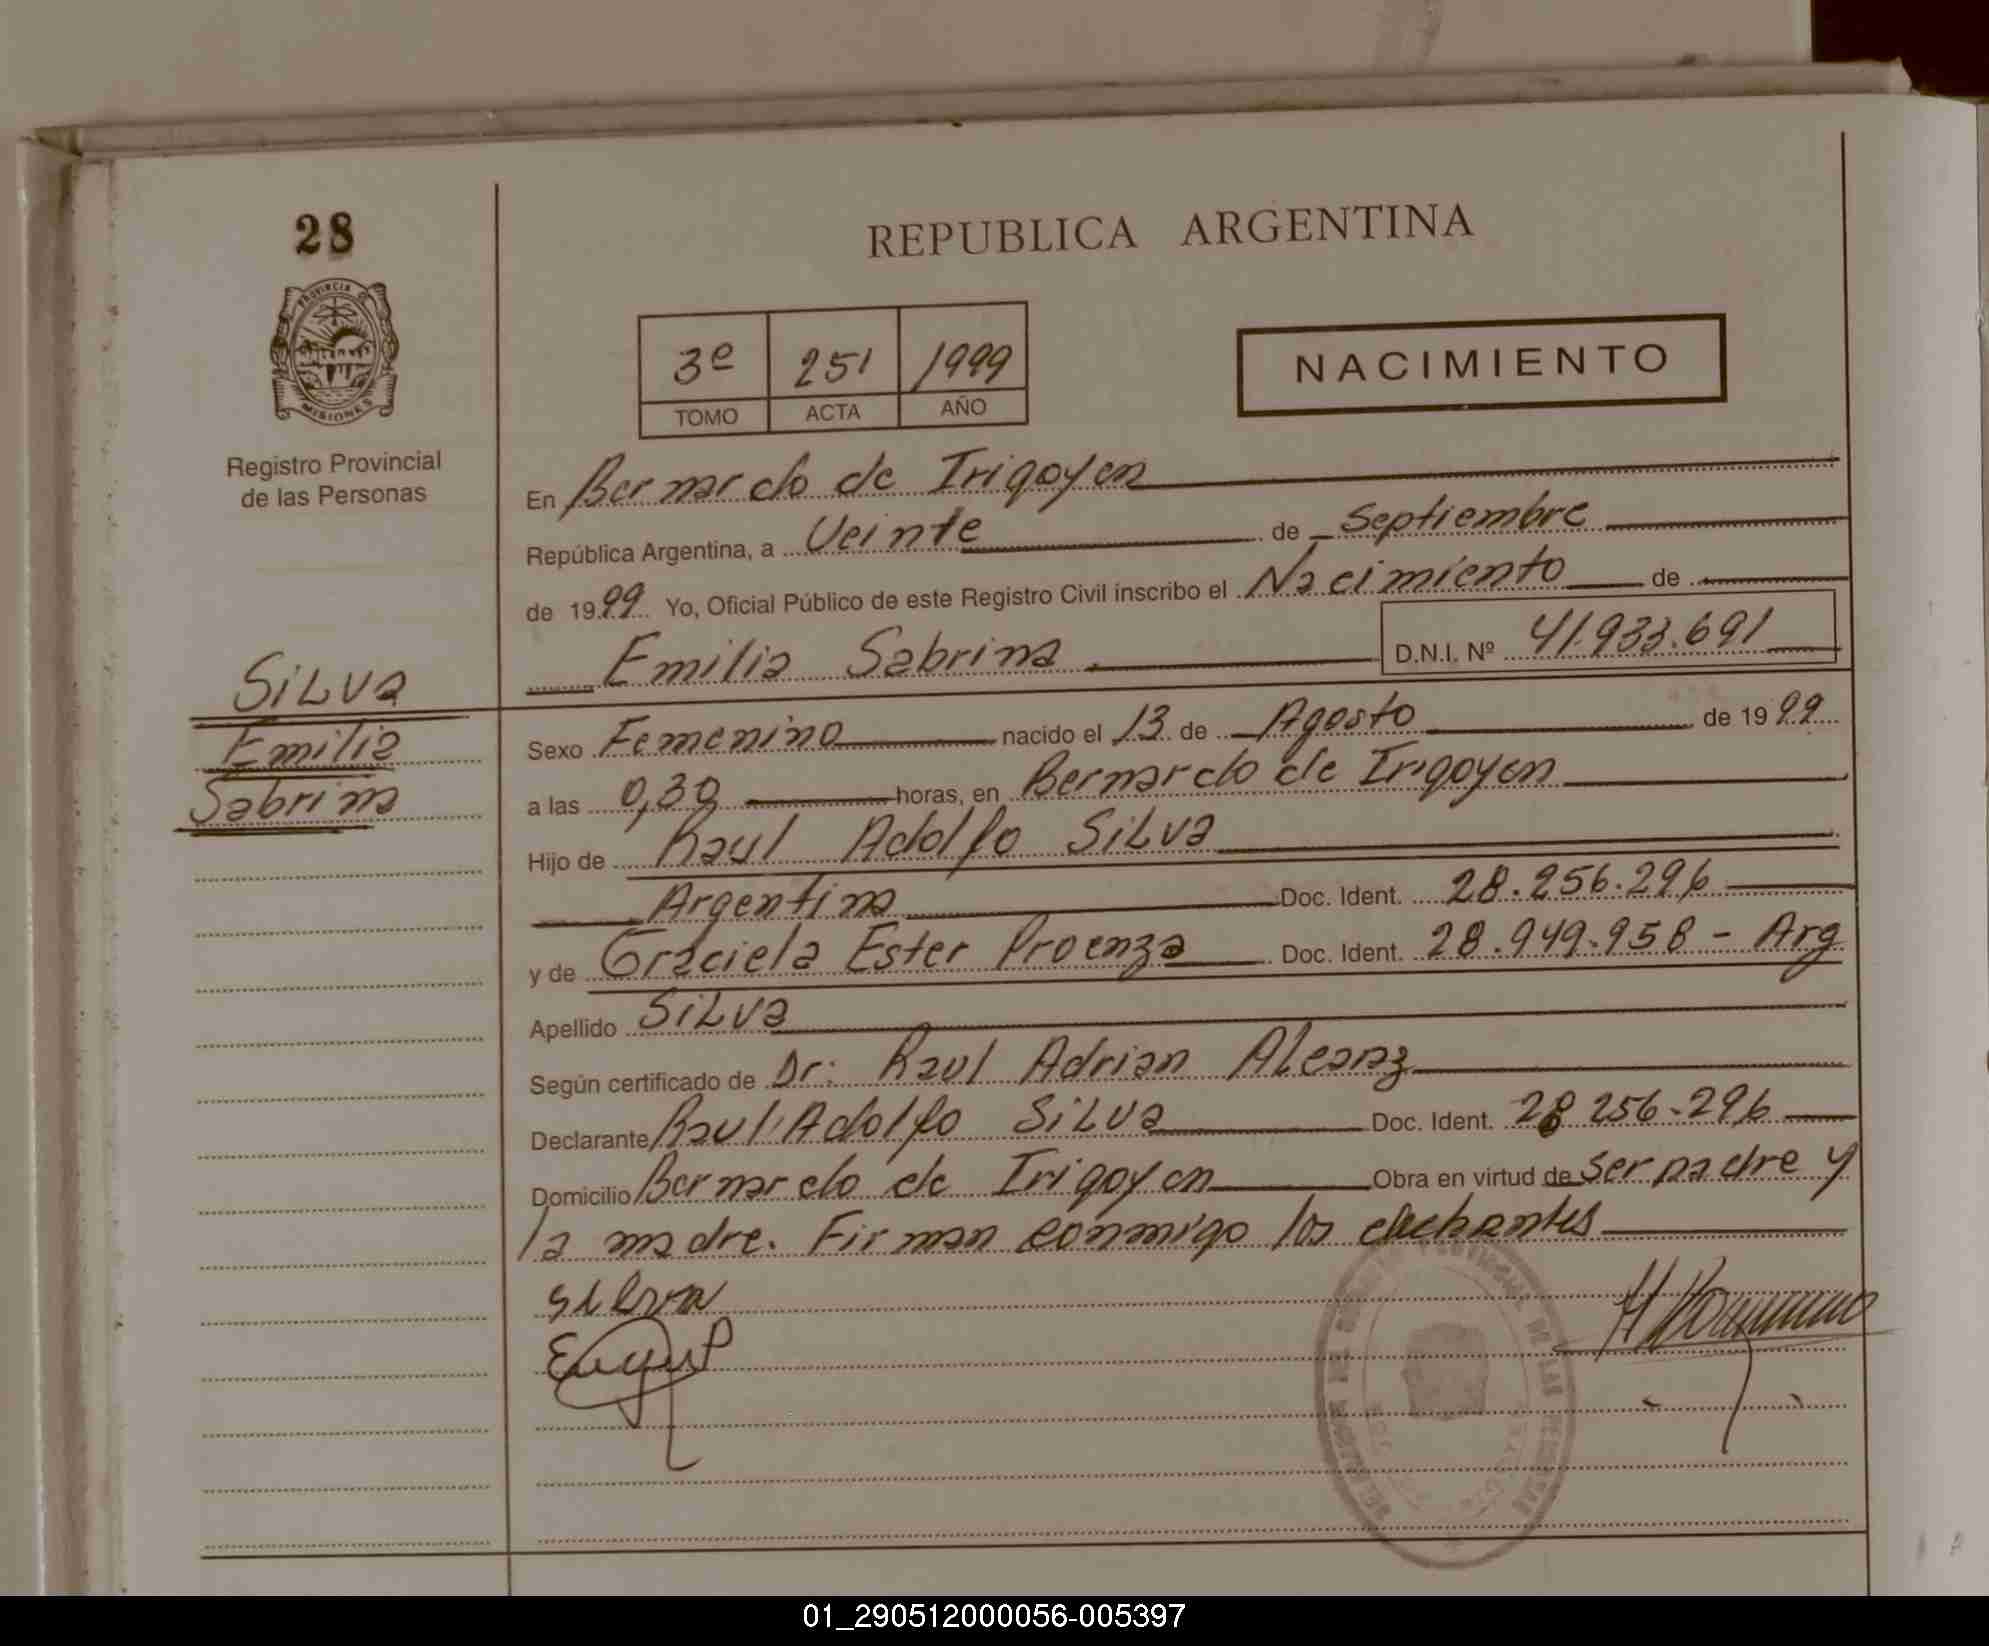 28
REPUBLICA ARGENTINA
PROVINCIA DE
MISIONES
Registro Provincial
de las Personas
3º 251 1999
TOMO ACTA AÑO
NACIMIENTO
En Bernardo de Irigoyen
República Argentina, a Veinte de Septiembre
de 1999 Yo, Oficial Público de este Registro Civil inscribo el Nacimiento de
Emilia Sabrina D.N.I. Nº 41.933.691
SiLVa
Emilia
Sabrina
Sexo Femenino nacido el 13 de Agosto de 1999
a las 0,30 horas, en Bernardo de Irigoyen
Hijo de Raul Adolfo SiLVa
Argentina Doc. Ident. 28.256.296
y de Graciela Ester Proenza Doc. Ident. 28.949.958 - Arg
Apellido SiLVa
Según certificado de Dr: Raul Adrian
Declarante Raul Adolfo SiLVa Doc. Ident. 28 256.296
Domicilio Bernardo de Irigoyen Obra en virtud de ser padre y
la madre. Firman conmigo los
Silva
01_290512000056-005397